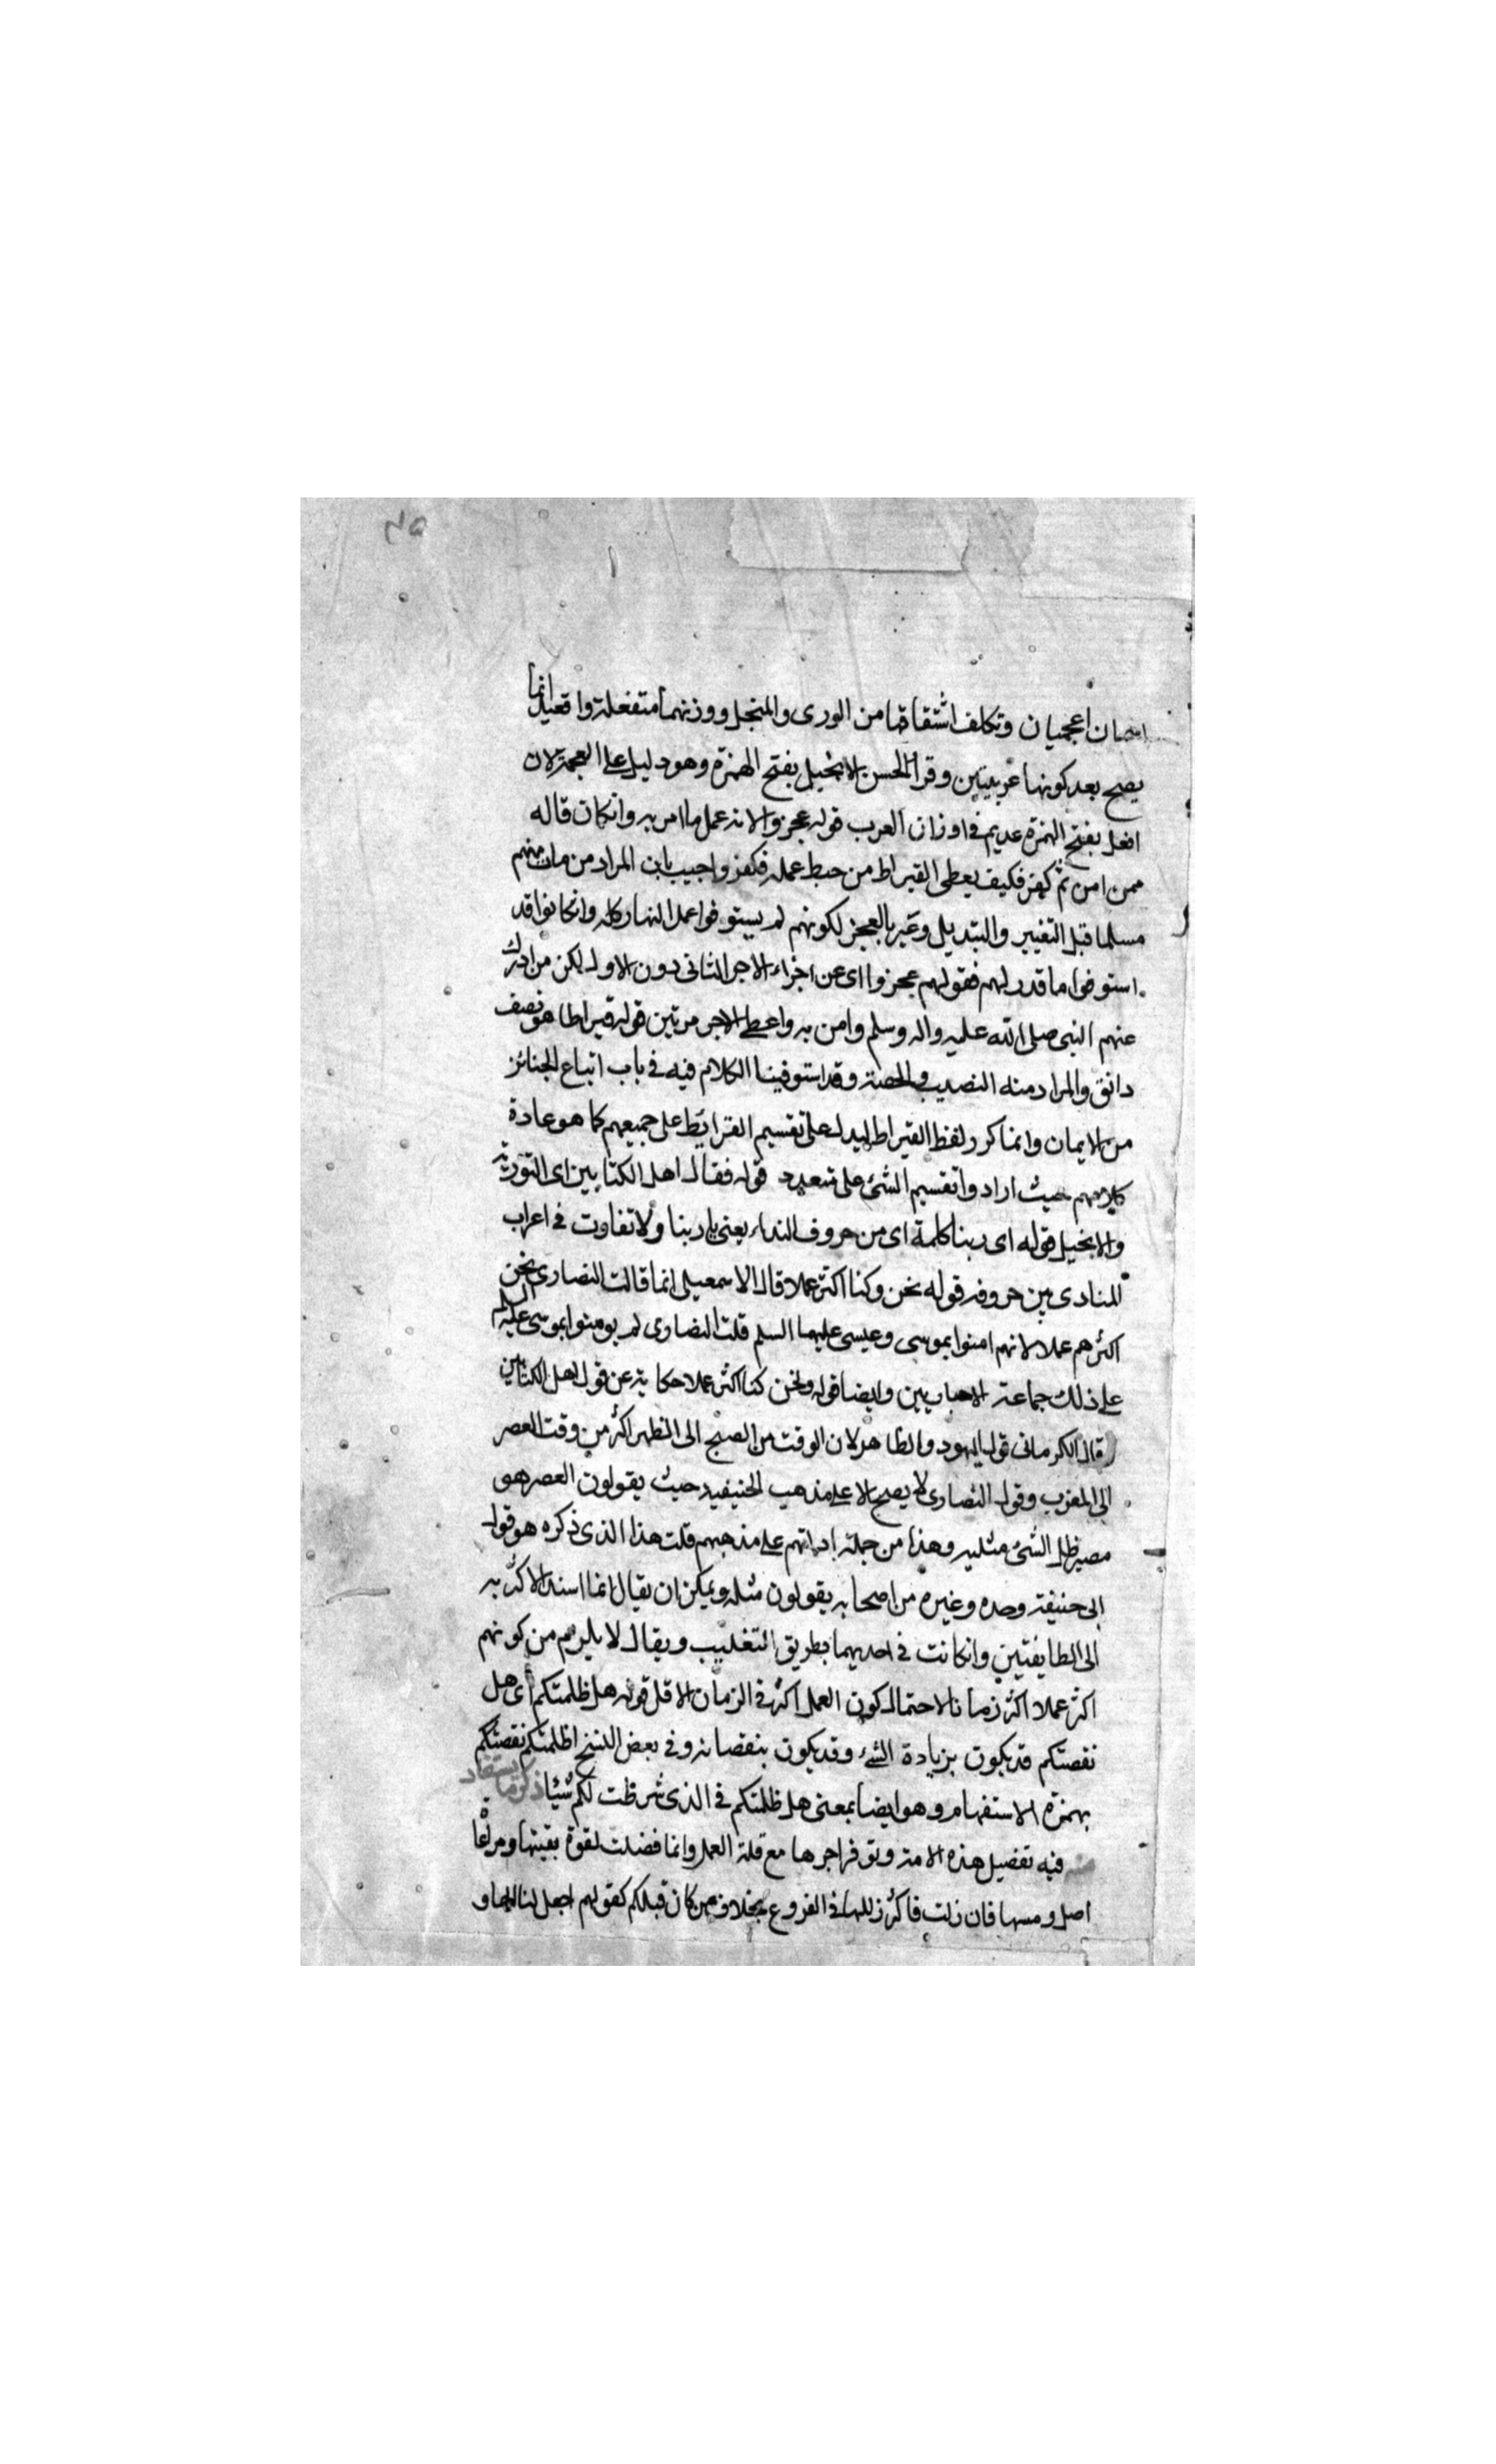 اسمان اعجميان وتكلف اشتقاقهما من الورى والمنجل ووزنهما متفعلة وافعيل انما
يصح بعد كونهما عربيتين وقرا الحسن الانجيل بفتح الهمزة وهو دليل على العجمة لان
افعل بفتح الهمزة عديم في اوزان العرب قوله عجزوا لانه عمل ما امر به وانكان قاله
ممن امن ثم كفر فكيف يعطى القيراط من حبط عمله فكفر واجيب بان المراد من مات منهم
مسلما قبل التغيير والتبديل وعبر بالعجز لكونهم لم يستوفوا عمل النهار كله وانكانوا قد
استوفوا ما قدر لهم فقولهم عجزوا اى عن اجزاء الاجر الثانى دون الاول لكن من ادرك
عنهم النبى صلى الله عليه واله وسلم وامن به واعطى الاجر مرتين قوله قيراطا هو نصف
دانق والمراد منه النصيب والحصة وقد استوفينا الكلام فيه فى باب اتباع الجنائز
من الايمان وانما كرر لفظ القيراط ليدل على تقسيم القراريط على جميعهم كما هو عادة
كلامهم حيث ارادوا تقسيم الشئ على متعدد قوله فقال اهل الكتابين اى التورية
والانجيل قوله اى ربنا كلمة اى من حروف النداء يعنى يا ربنا ولا تفاوت فى اعراب
المنادى بين حروفه قوله نحن وكنا اكثر عملا قال الاسمعيلى انما قالت النصارى نحن
اكثرهم عملا لانهم امنوا بموسى وعيسى عليهما السلم قلت النصارى لم يومنوا بموسى عليه السلم
على ذلك جماعة الاخباريين وايضا قوله ونحن كنا اكثر عملا حكاية عن قول اهل الكتابين
قال الكرمانى قول اليهود والظاهر لان الوقت من الصبح الى الظهر اكثر من وقت العصر
الى المغرب وقول النصارى لا يصح الا على مذهب الحنيفيه حيث يقولون العصر هو
مصير ظل الشئ مثليه وهذا من جملة ادلتهم على مذهبهم قلت هذا الذى ذكره هو قول
ابى حنيفة وحده وغيره من اصحابه يقولون مثله ويمكن ان يقال انما اسند الاكثرية
الى الطايفتين وانكانت فى احديهما بطريق التغليب ويقال لا يلزم من كونهم
اكثر عملا اكثر زمانا لاحتمال كون العمل اكثر فى الزمان الاقل قوله هل ظلمتكم اى هل
نقصتكم قد يكون بزيادة الشئ وقد يكون بنقصانه وفى بعض النسخ اظلمتكم نقصتكم
بهمزة الاستفهام وهو ايضا بمعنى هل ظلمتكم فى الذى شرطت لكم شيئا ذكر ما يستفاد
منه فيه تفضيل هذه الامة وتوفر اجرها مع قلة العمل وانما فضلت لقوة يقينها ومراعا
اصل فان زلت فاكثر زللها فى الفروع بخلاف من كان قبلكم كقولهم اجعل لنا الها و